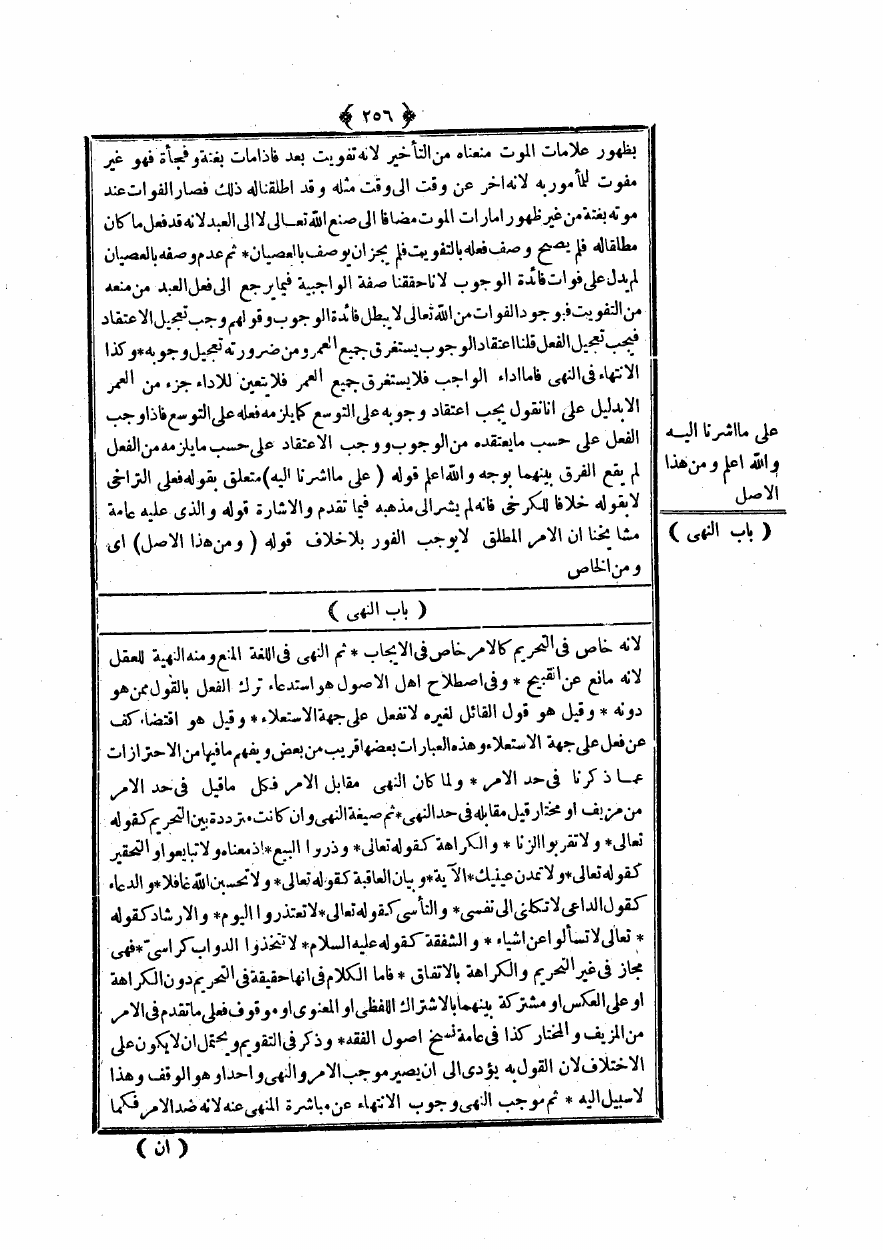 ﴿ ٢٥٦ ﴾
بظهور علامات الموت منعناه من التأخير لانه تفويت بعد فاذامات بغتة وفجأة فهو غير
مفوت للمأموربه لانه اخر عن وقت الى وقت مثله وقد اطلقناله ذلك فصار الفوات عند
موته بغتة من غير ظهور امارات الموت مضافا الى صنع الله تعالى لا الى العبد لانه قد فعل ما كان
مطلقاله فلم يصح وصف فعله بالتفويت فلم يجز ان يوصف بالعصيان* ثم عدم وصفه بالعصيان
لم يدل على فوات فائدة الوجوب لاناحققنا صفة الواجبية فيما يرجع الى فعل العبد من منعه
من التفويت فبوجود الفوات من الله تعالى لا يبطل فائدة الوجوب وقولهم وجب تعجيل الاعتقاد
فيجب تعجيل الفعل قلنا اعتقاد الوجوب يستغرق جميع العمر ومن ضرورته تعجيل وجوبه*وكذا
الانتهاء فى النهى فاما اداء الواجب فلا يستغرق جميع العمر فلا يتعين للاداء جزء من العمر
الابدليل على انانقول يجب اعتقاد وجوبه على التوسع كما يلزمه فعله على التوسع فاذا وجب
الفعل على حسب مايعتقده من الوجوب ووجب الاعتقاد على حسب مايلزمه من الفعل
لم يقع الفرق بينهما بوجه والله اعلم قوله ( على مااشرنا اليه) متعلق بقوله فعلى التراخى
لا بقوله خلافا للكرخى فانه لم يشر الى مذهبه فيما تقدم والاشارة قوله والذى عليه عامة
مشايخنا ان الامر المطلق لايوجب الفور بلاخلاف قوله ( ومن هذا الاصل) اى
ومن الخاص
على مااشرنا اليه
والله اعلم ومن هذا
الاصل
( باب النهى )
( باب النهى )
لانه خاص فى التحريم كالامر خاص فى الايجاب * ثم النهى فى اللغة المنع ومنه النهية للعقل
لانه مانع عن القبيح * وفى اصطلاح اهل الاصول هو استدعاء ترك الفعل بالقول ممن هو
دونه * وقيل هو قول القائل لغيره لاتفعل على جهة الاستعلاء* وقيل هو اقتضاء كف
عن فعل على جهة الاستعلاء وهذه العبارات بعضها قريب من بعض ويفهم مافيها من الاحترازات
عما ذكرنا فى حد الامر * ولما كان النهى مقابل الامر فكل ماقيل فى حد الامر
من مزيف او مختار قيل مقابله فى حد النهى*ثم صيغة النهى وان كانت مترددة بين التحريم كقوله
تعالى* ولا تقربوا الزنا * والكراهة كقوله تعالى* وذروا البيع*اذ معناه ولا تبايعوا والتحقير
كقوله تعالى*ولا تمدن عينيك*الآية*وبيان العاقبة كقوله تعالى* ولا تحسبن الله غافلا*والدعاء
كقول الداعى لاتكلنى الى نفسى* والتأسى كقوله تعالى*لاتعتذروا اليوم* والارشاد كقوله
* تعالى لا تسألوا عن اشياء * والشفقة كقوله عليه السلام* لاتتخذوا الدواب كراسى*فهى
مجاز فى غير التحريم والكراهة بالاتفاق * فاما الكلام فى انها حقيقة فى التحريم دون الكراهة
او على العكس او مشتركة بينهما بالاشتراك اللفظى او المعنوى او موقوف فعلى ماتقدم فى الامر
من المزيف والمختار كذا فى عامة نسخ اصول الفقه* وذكر فى التقويم ويحتمل ان لايكون على
الاختلاف لان القول به يؤدى الى ان يصير موجب الامر والنهى واحدا وهو الوقف وهذا
لا سبيل اليه * ثم موجب النهى وجوب الانتهاء عن مباشرة المنهى عنه لانه ضد الامر فكما
( ان )